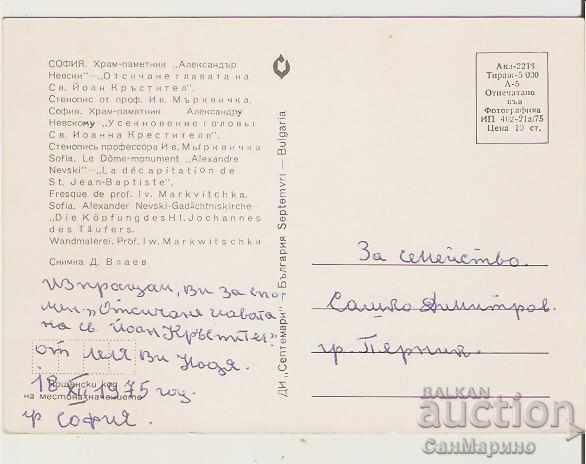 СОФИЯ. Храм-паметник „Александър
Невски" — „Отсичане главата на
Св. Йоан Кръстител".
Стенопис от проф. Ив. Мърквичка.
София. Храм-памятник Александру
Невскому „Усекновение головы
Св. Иоанна Крестителя".
Стенопись профессора Ив. Мырквички
Sofia. Le Dôme-monument „Alexandre
Nevski" — „La décapitation de
St. Jean-Baptiste".
Fresque de prof. Iv. Markvitchka.
Sofia. Alexander Nevski-Gadächtniskirche —
„Die Köpfung des Hl. Jochannes
des Täufers.
Wandmalerei. Prof. Iv. Markwitschka
Снимка Д. Влаев
Изпращам, Ви за спо-
мен „Отсичане главата
на св. Йоан Кръстител"
от леля Ви Надя.
18 XII 1975 год.
гр София.
Пощенски код
на местоназначението
ДИ „Септември" — България Septemvri — Bulgaria
Акл-2214
Тираж-5 000
А-5
Отпечатано
във
Фотографика
ИП 402-21а/75
Цена 10 ст.
За семейство.
Сашко Димитров.
гр. Перник.
BALKAN
auction
СанМарино